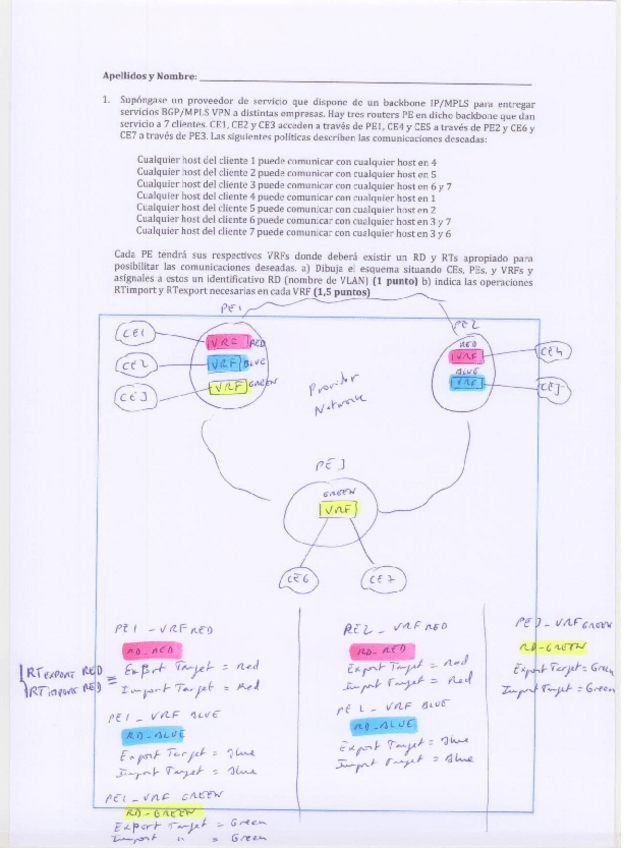 Apellidos y Nombre:
1. Supóngase un proveedor de servicio que dispone de un backbone IP/MPLS para entregar
servicios BGP/MPLS VPN a distintas empresas. Hay tres routers PE en dicho backbone que dan
servicio a 7 clientes. CE1, CE2 y CE3 acceden a través de PE1, CE4 y CE5 a través de PE2 y CE6 y
CE7 a través de PE3. Las siguientes políticas describen las comunicaciones deseadas:
Cualquier host del cliente 1 puede comunicar con cualquier host en 4
Cualquier host del cliente 2 puede comunicar con cualquier host en 5
Cualquier host del cliente 3 puede comunicar con cualquier host en 6 y 7
Cualquier host del cliente 4 puede comunicar con cualquier host en 1
Cualquier host del cliente 5 puede comunicar con cualquier host en 2
Cualquier host del cliente 6 puede comunicar con cualquier host en 3 y 7
Cualquier host del cliente 7 puede comunicar con cualquier host en 3 y 6
Cada PE tendrá sus respectivos VRFs donde deberá existir un RD y RTs apropiado para
posibilitar las comunicaciones deseadas. a) Dibuja el esquema situando CEs, PEs, y VRFs y
asígnales a estos un identificativo RD (nombre de VLAN) (1 punto) b) indica las operaciones
RTimport y RTexport necesarias en cada VRF (1,5 puntos)
PE1
PE2
CE1
VRF RED
CE2
VRF BLUE
CE3
VRF GREEN
Provider
Network
RED
VRF
CE4
BLUE
VRF
CE5
PE3
GREEN
VRF
CE6
CE7
PE1 - VRF RED
RD-RED
RT EXPORT RED
RT IMPORT RED
=
Export Target = Red
Import Target = Red
PE1 - VRF BLUE
RD-BLUE
Export Target = Blue
Import Target = Blue
PE1 - VRF GREEN
RD-GREEN
Export Target = Green
Import " = Green
PE2 - VRF RED
RD-RED
Export Target = Red
Import Target = Red
PE2 - VRF BLUE
RD-BLUE
Export Target = Blue
Import Target = Blue
PE3 - VRF GREEN
RD-GREEN
Export Target = Green
Import Target = Green